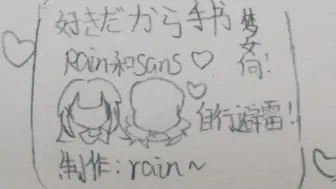 好きだから手书
梦女向!
rain和sans♡
自行避雷!
制作:rain~